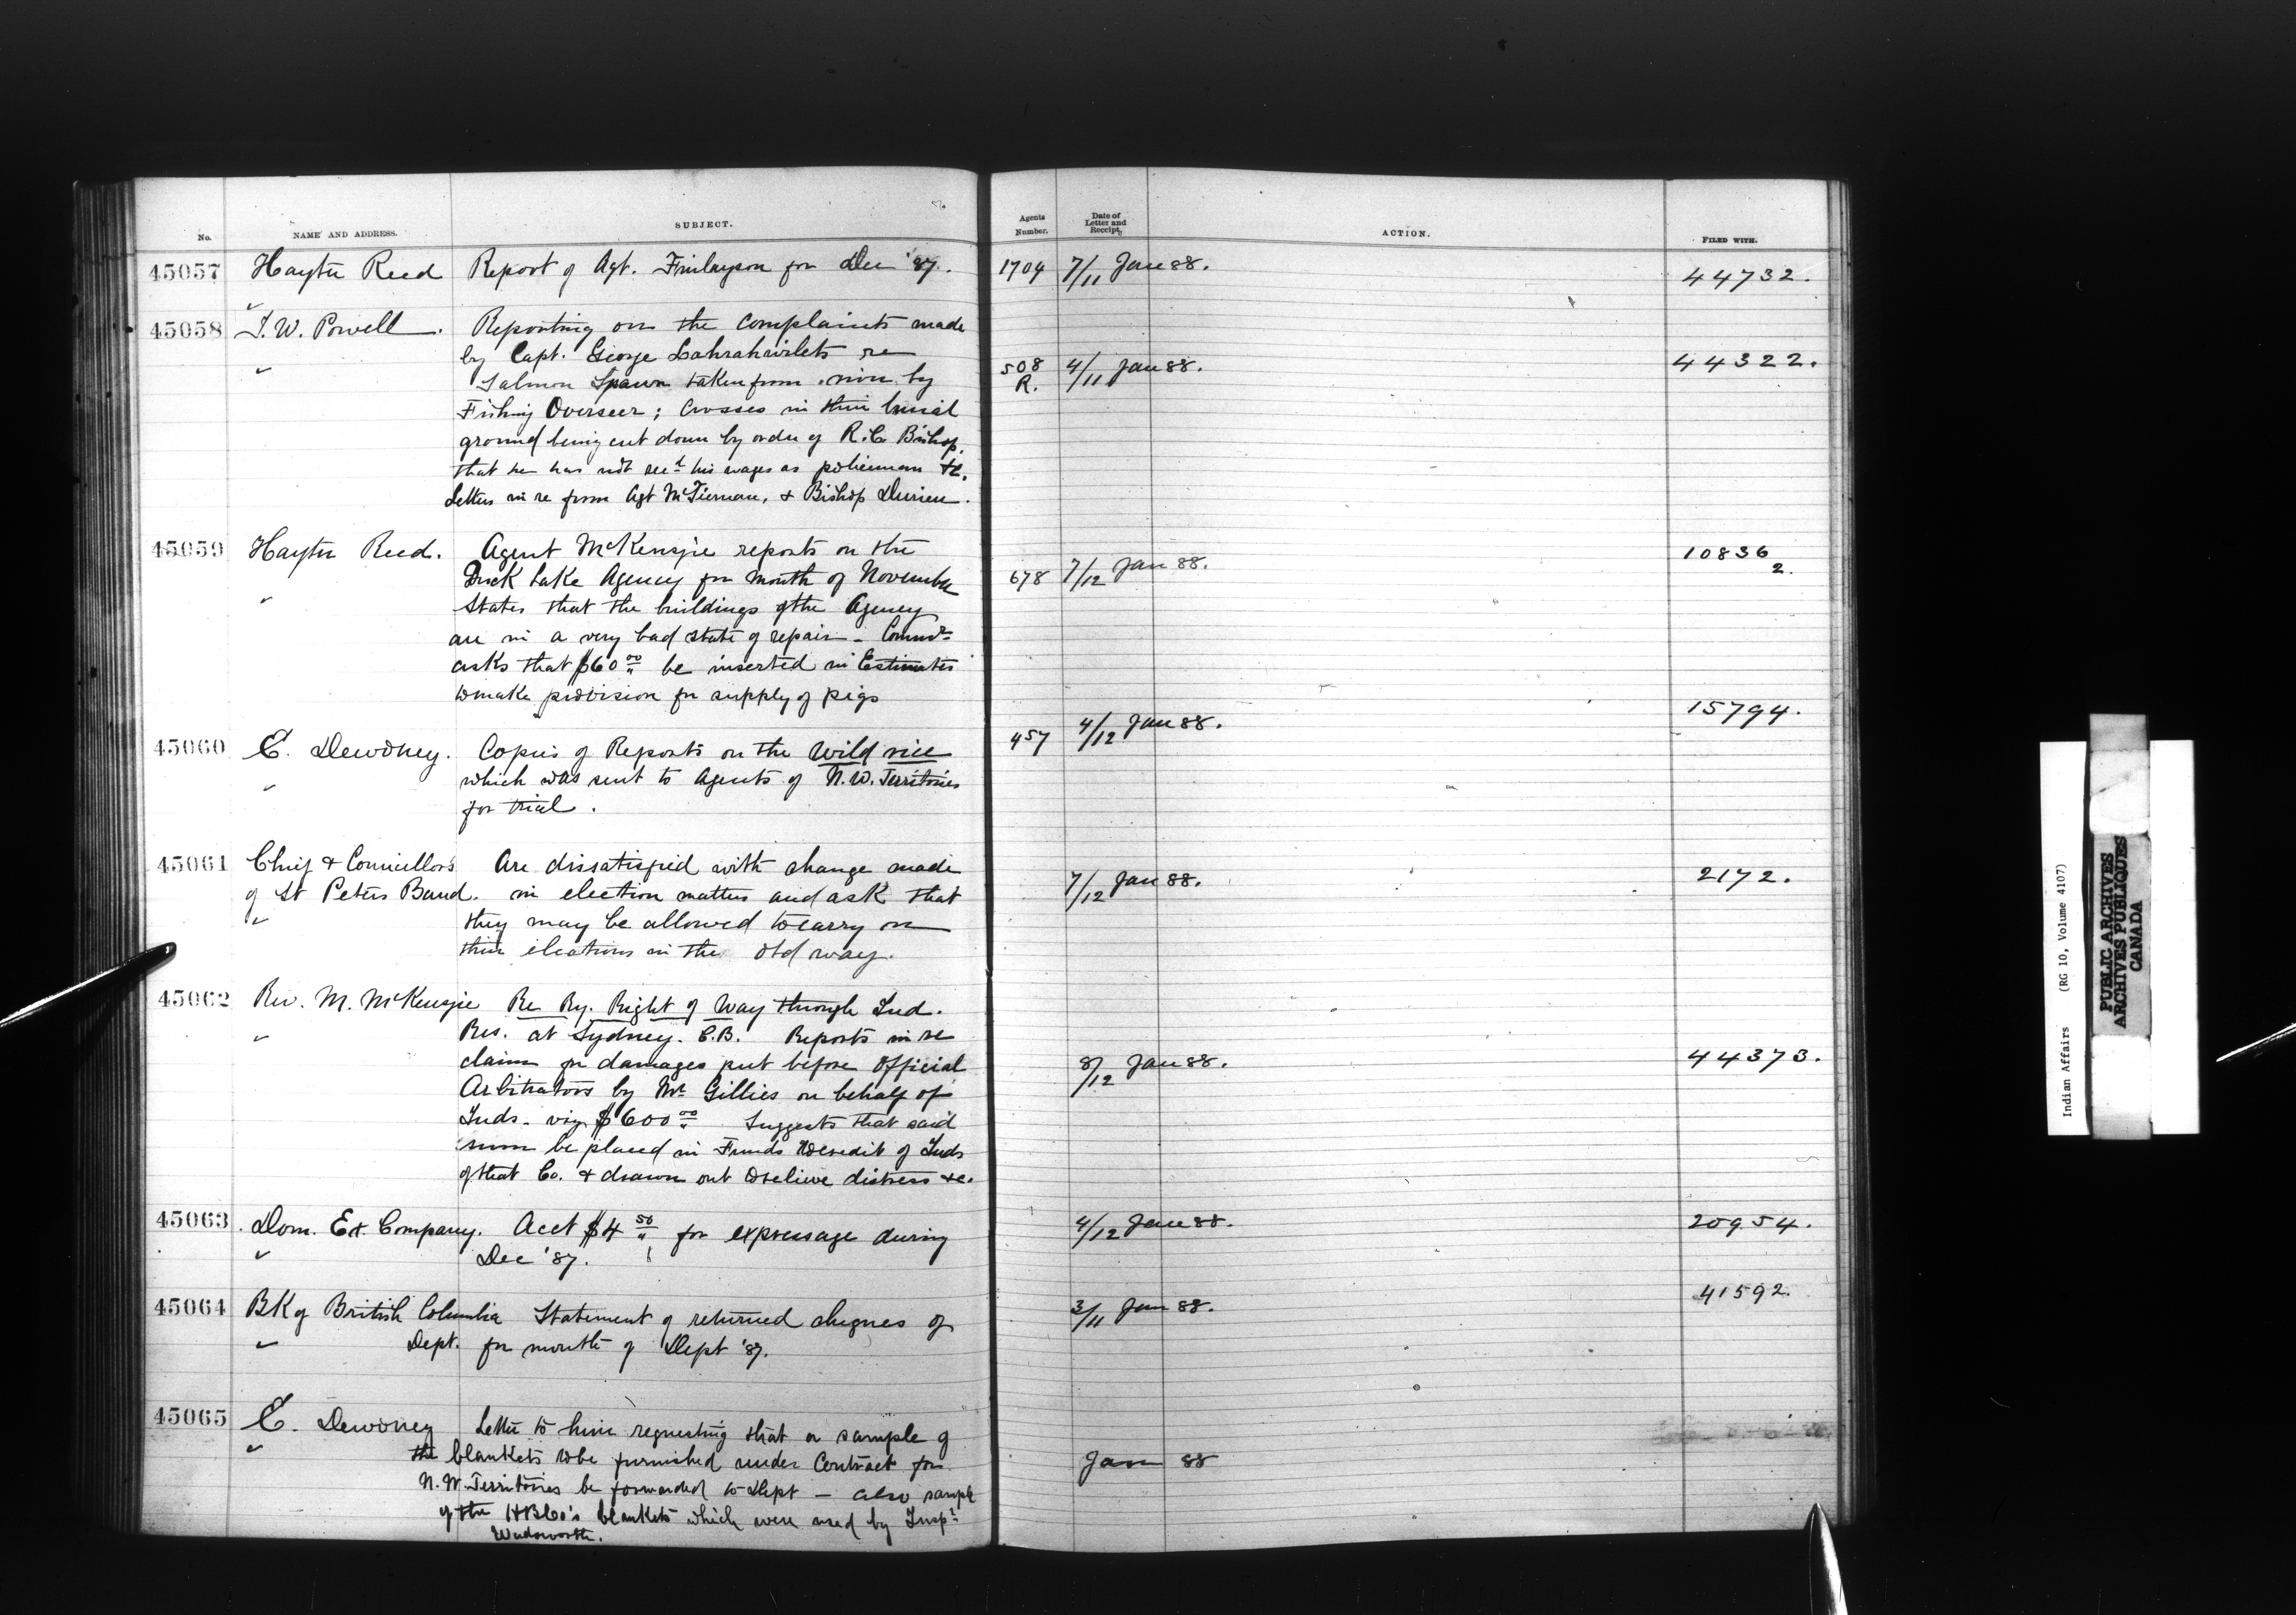 No. NAME AND ADDRESS. SUBJECT. Agents Number. Date of Letter and Receipt, ACTION. FILED WITH.
45057 Hayter Reed Report of Agt. Finlayson for Dec '87. 1704 7/11 Jan 88. 44732.
45058 I. W. Powell. Reporting on the complaints made
by Capt. George re 508 R. 4/11 Jan 88. 44322.
Salmon Spawn taken from river by
Fishing Overseer; Crosses in their burial
ground being cut down by order of R.C. Bishop,
that he has not recd his wages as policeman &c.
Letters in re from Agt McTiernan, & Bishop Durieu.
45059 Hayter Reed. Agent McKenzie reports on the 10836 2.
Duck Lake Agency for month of November 678 7/12 Jan 88.
States that the buildings of the Agency
are in a very bad state of repair - Commr
asks that $60 00 be inserted in Estimates
to make provision for supply of pigs
45060 E. Dewdney. Copies of Reports on the Wild rice 457 4/12 Jan 88. 15794.
which was sent to Agents of N.W. Territories
for trial.
45061 Chief & Councillors Are dissatisfied with change made
of St Peters Band. in election matters and ask that 7/12 Jan 88. 2172.
they may be allowed to carry on
their elections in the old way.
45062 Rev. M. McKenzie Re Ry. Right of Way through Ind.
Res. at Sydney. C.B. Reports in re
claim for damages put before Official 8/12 Jan 88. 44373.
Arbitrators by Mr Gillies on behalf of
Inds. viz $600 00 Suggests that said
sum be placed in Funds to credit of Inds
of that Co. & drawn out to relieve distress &c.
45063 Dom. Ex. Company. Acct $4 50 for expressage during 4/12 Jan 88. 20954.
Dec '87.
45064 BK of British Columbia Statement of returned cheques of 3/11 Jan 88. 41592.
Dept. for month of Sept '87.
45065 E. Dewdney Letter to him requesting that a sample of
the blankets to be furnished under Contract for Jan 88
N.W. Territories be forwarded to Dept - also sample
of the HBCo's blankets which were used by Inspr
Wadsworth.
Indian Affairs (RG 10, Volume 4107)
PUBLIC ARCHIVES
ARCHIVES PUBLIQUES
CANADA